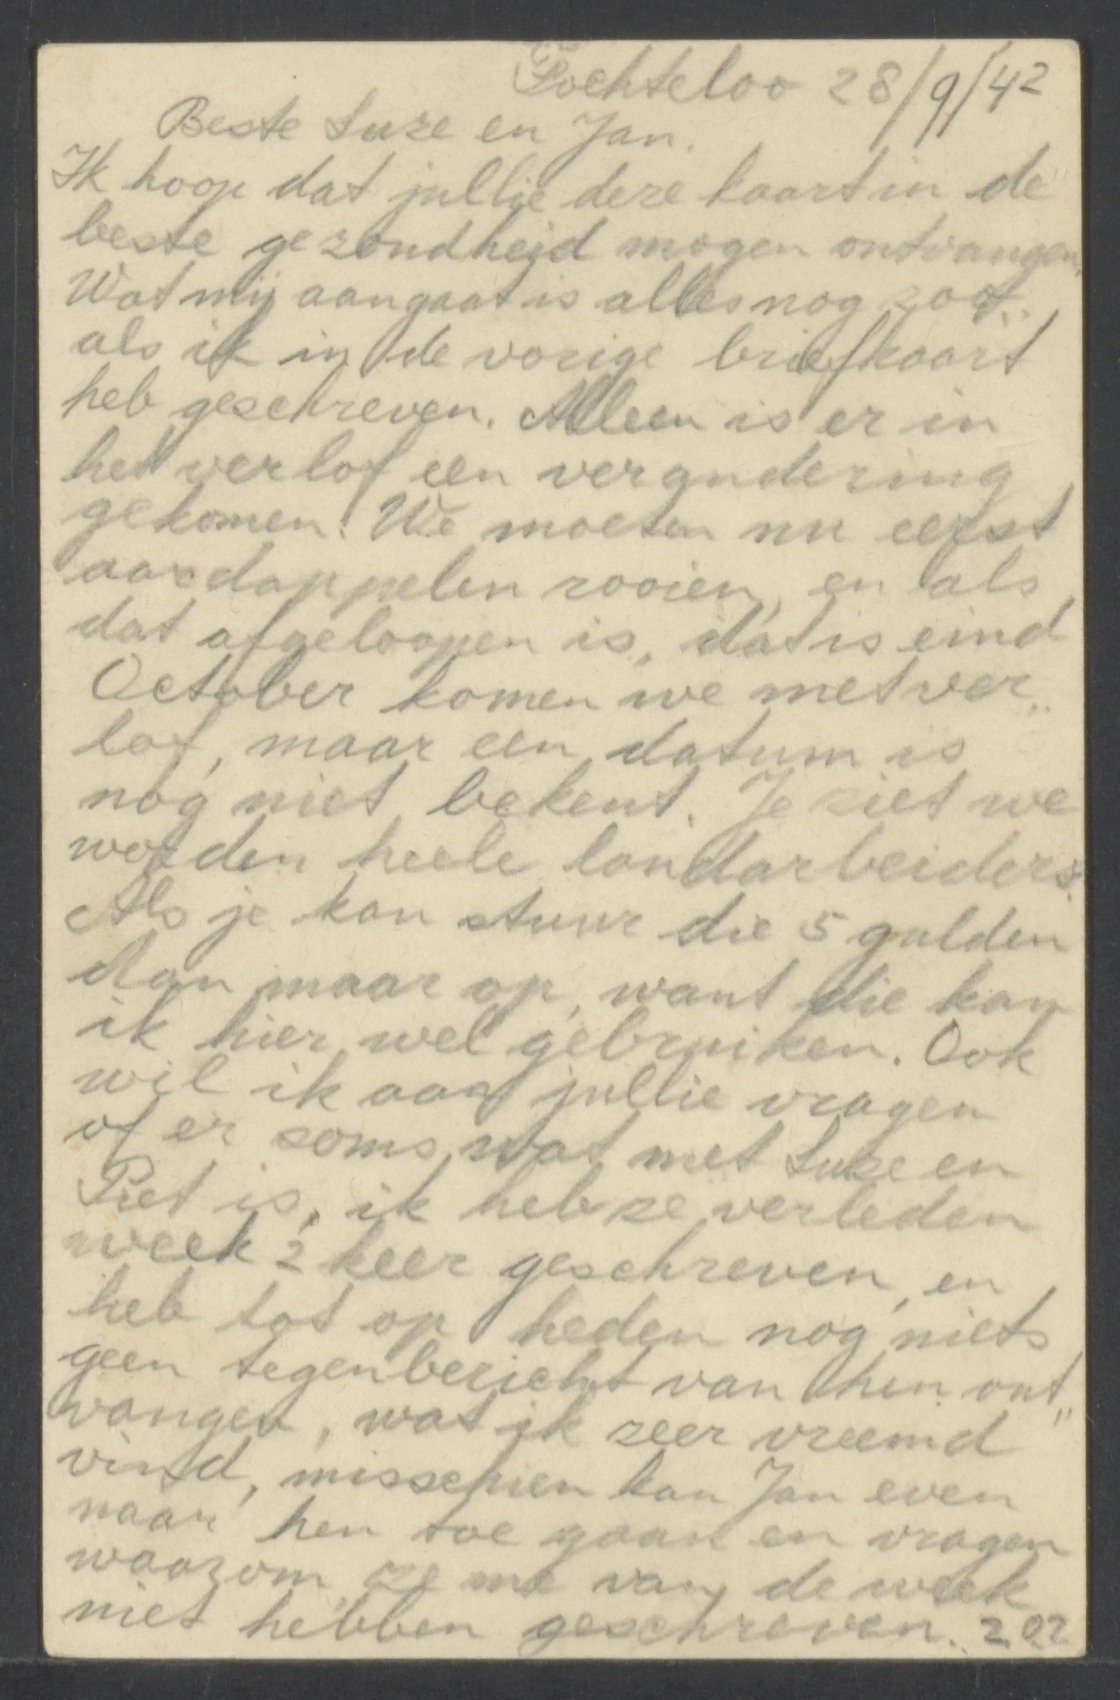 Fochteloo 28/9/42
Beste Suze en Jan.
Ik hoop dat jullie deze kaart in de
beste gezondheid mogen ontvangen.
Wat mij aangaat is alles nog zoo„
als ik in de vorige briefkaart
heb geschreven. Alleen is er in
het verlof een verandering
gekomen. We moeten nu eerst
aardappelen rooien, en als
dat afgeloopen is, dat is eind
October komen we met ver„
lof, maar een datum is
nog niet bekent. Je ziet we
worden heele landarbeiders.
Als je kan stuur die 5 gulden
dan maar op, want die kan
ik hier wel gebruiken. Ook
wil ik aan jullie vragen
of er soms wat met Suze en
Piet is, ik heb ze verleden
week 2 keer geschreven, en
heb tot op heden nog niets
geen tegenbericht van hen ont„
vangen, wat ik zeer vreemd
vind, misschien kan Jan even
naar hen toe gaan en vragen
waarom ze me van de week
niet hebben geschreven. z.o.z